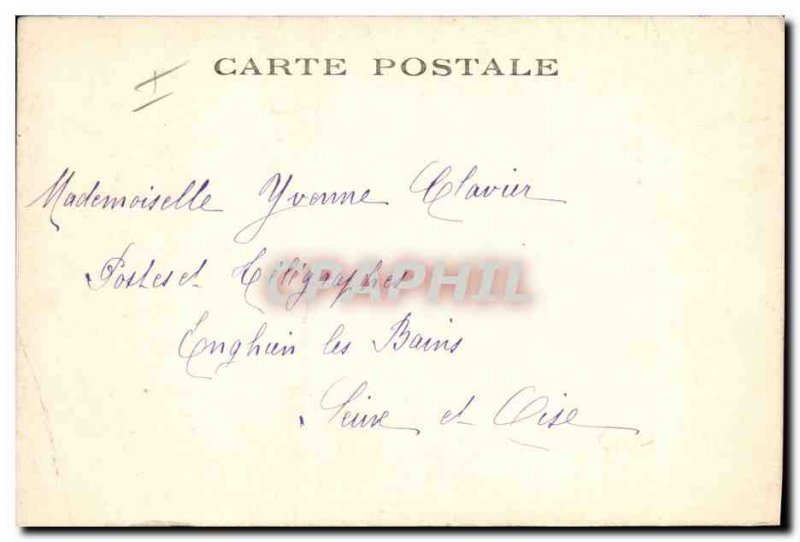 CARTE POSTALE
Mademoiselle Yvonne Clavier
Postes et Télégraphes
CPAPHIL
Enghien les Bains
Seine et Oise